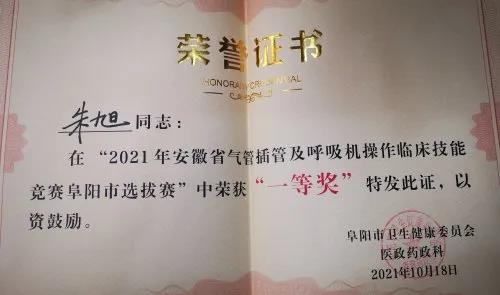 荣誉证书
HONORARY CREDENTIAL
朱旭同志：
在“2021年安徽省气管插管及呼吸机操作临床技能
竞赛阜阳市选拔赛”中荣获“一等奖”特发此证，以
资鼓励。
阜阳市卫生健康委员会
医政药政科
2021年10月18日